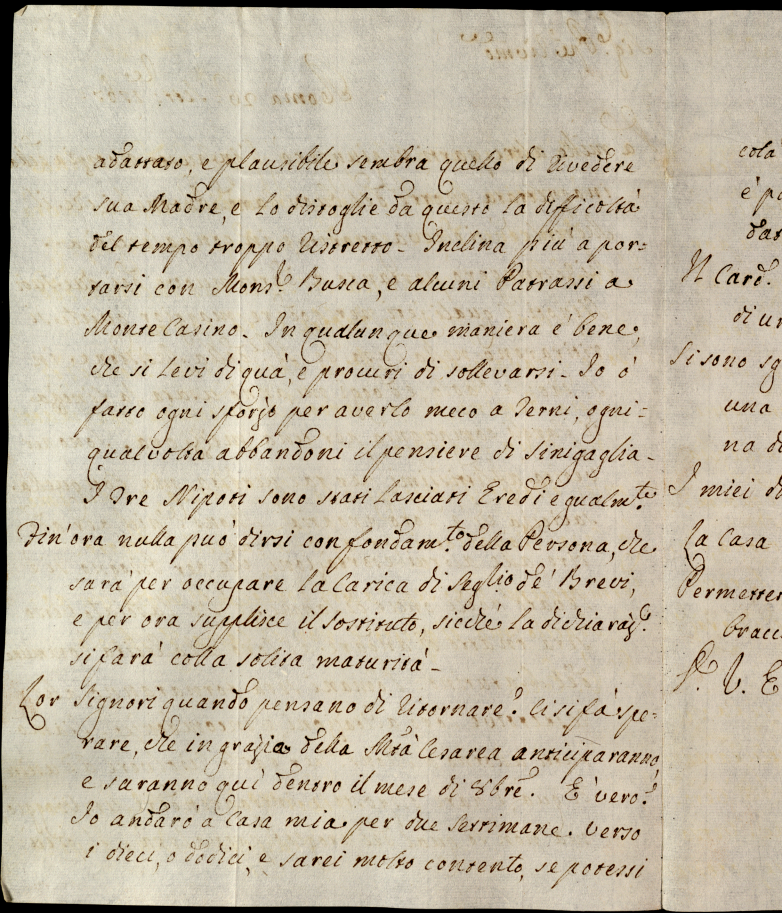 adattato, e plausibile sembra quello di rivedere
sua Madre, e lo distoglie da questo la difficoltà
del tempo troppo ristretto. Inclina più a por=
tarsi con Mons.r Busca, e alcuni Patrassi a
Monte Casino. In qualunque maniera è bene,
che si levi di quà, e procuri di sollevarsi. Io ò
fatto ogni sforzo per averlo meco a Terni, ogni=
qualvolta abbandoni il pensiere di Sinigaglia.
I Tre Nipoti sono stati lasciati Eredi egualm.te
Fin'ora nulla può dirsi con fondam.to della Persona, che
sarà per occupare la Carica di Seg.rio de' Brevi,
e per ora supplisce il sostituto, sicchè la dichiaraz.e
si farà colla solita maturità.
Lor Signori quando pensano di ritornare? Ci si fà spe=
rare, che in grazia della Mtà Cesarea anticiparanno,
e saranno quì dentro il mese di 8bre. È vero?
Io andarò a Casa mia per due settimane. verso
i dieci, o dodici, e sarei molto contento, se potessi
colà
è po
dat
Il Card.
di un
Si sono sg
una
na di
I miei di
La Casa
Permetter
bracc
P. V. E